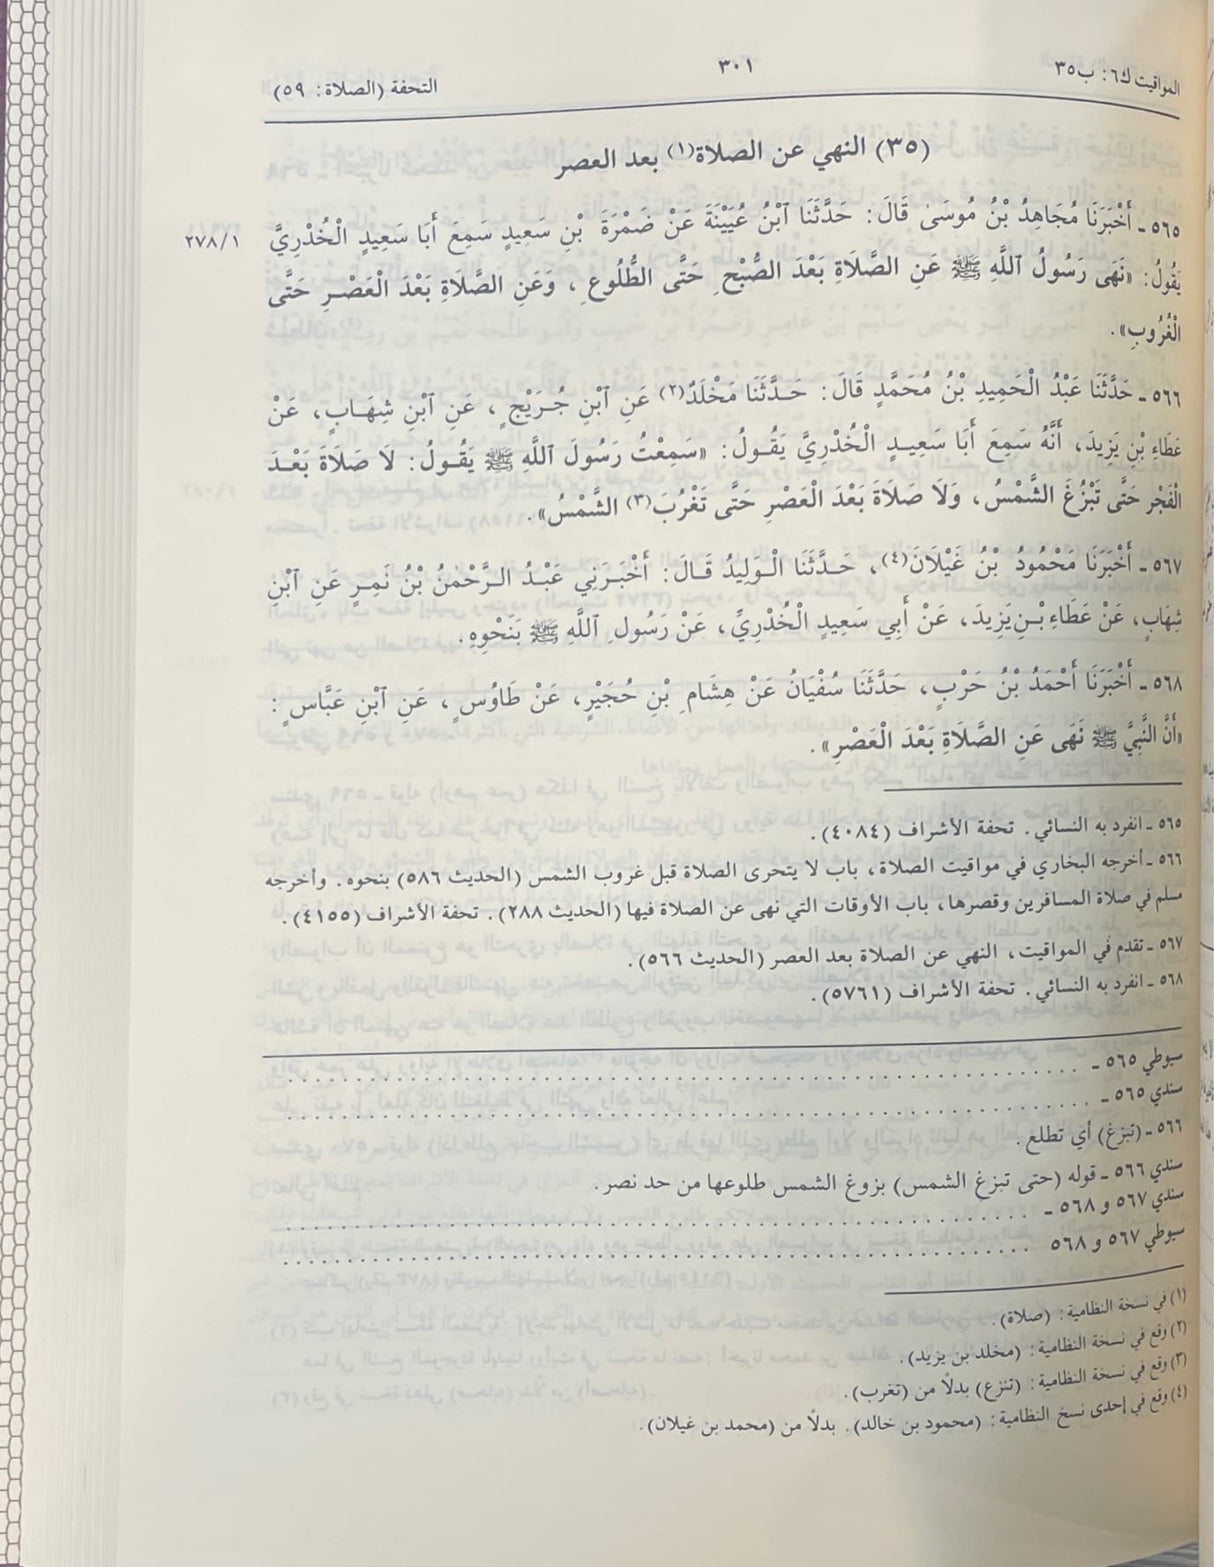 المواقيت ك٦: ب٣٥
٣٠١
التحفة (الصلاة: ٥٩)
(٣٥) النهي عن الصلاة(١) بعد العصر
٥٦٥ - أَخْبَرَنَا مُجَاهِدُ بْنُ مُوسَىٰ قَالَ: حَدَّثَنَا ٱبْنُ عُيَيْنَةَ عَنْ ضَمْرَةَ بْنِ سَعِيدٍ سَمِعَ أَبَا سَعِيدٍ الْخُدْرِيَّ
٢٧٨/١
يَقُولُ: «نَهَى رَسُولُ ٱللَّهِ ﷺ عَنِ الصَّلَاةِ بَعْدَ الصُّبْحِ حَتَّى الطُّلُوعِ، وَعَنِ الصَّلَاةِ بَعْدَ الْعَصْرِ حَتَّى
الْغُرُوبِ».
٥٦٦ - حَدَّثَنَا عَبْدُ الْحَمِيدِ بْنُ مُحَمَّدٍ قَالَ: حَدَّثَنَا مَخْلَدٌ(٢) عَنِ ٱبْنِ جُرَيْجٍ، عَنِ ٱبْنِ شِهَابٍ، عَنْ
عَطَاءِ بْنِ يَزِيدَ، أَنَّهُ سَمِعَ أَبَا سَعِيدٍ الْخُدْرِيَّ يَقُولُ: «سَمِعْتُ رَسُولَ ٱللَّهِ ﷺ يَقُولُ: لَا صَلَاةَ بَعْدَ
الْفَجْرِ حَتَّى تَبْزُغَ الشَّمْسُ، وَلَا صَلَاةَ بَعْدَ الْعَصْرِ حَتَّى تَغْرُبَ(٣) الشَّمْسُ».
٥٦٧ - أَخْبَرَنَا مَحْمُودُ بْنُ غَيْلَانَ(٤)، حَدَّثَنَا الْوَلِيدُ قَالَ: أَخْبَرَنِي عَبْدُ الرَّحْمٰنِ بْنُ نَمِرٍ عَنِ ٱبْنِ
شِهَابٍ، عَنْ عَطَاءِ بْنِ يَزِيدَ، عَنْ أَبِي سَعِيدٍ الْخُدْرِيِّ، عَنْ رَسُولِ ٱللَّهِ ﷺ بَنَحْوِهِ.
٥٦٨ - أَخْبَرَنَا أَحْمَدُ بْنُ حَرْبٍ، حَدَّثَنَا سُفْيَانُ عَنْ هِشَامِ بْنِ حُجَيْرٍ، عَنْ طَاوُسٍ، عَنِ ٱبْنِ عَبَّاسٍ:
«أَنَّ النَّبِيَّ ﷺ نَهَى عَنِ الصَّلَاةِ بَعْدَ الْعَصْرِ».
٥٦٥ - انفرد به النسائي. تحفة الأشراف (٤٠٨٤).
٥٦٦ - أخرجه البخاري في مواقيت الصلاة، باب لا يتحرى الصلاة قبل غروب الشمس (الحديث ٥٨٦) بنحوه. وأخرجه
مسلم في صلاة المسافرين وقصرها، باب الأوقات التي نهى عن الصلاة فيها (الحديث ٢٨٨). تحفة الأشراف (٤١٥٥).
٥٦٧ - تقدم في المواقيت، النهي عن الصلاة بعد العصر (الحديث ٥٦٦).
٥٦٨ - انفرد به النسائي. تحفة الأشراف (٥٧٦١).
سيوطي ٥٦٥ -
سندي ٥٦٥ -
٥٦٦ - (تبزغ) أي تطلع.
سندي ٥٦٦ - قوله (حتى تبزغ الشمس) بزوغ الشمس طلوعها من حد نصر.
سندي ٥٦٧ و ٥٦٨ -
سيوطي ٥٦٧ و ٥٦٨
(١) في نسخة النظامية: (صلاة).
(٢) وقع في نسخة النظامية: (مخلد بن يزيد).
(٣) وقع في نسخة النظامية: (تنزع) بدلًا من (تغرب).
(٤) وقع في إحدى نسخ النظامية: (محمود بن خالد). بدلًا من (محمد بن غيلان).